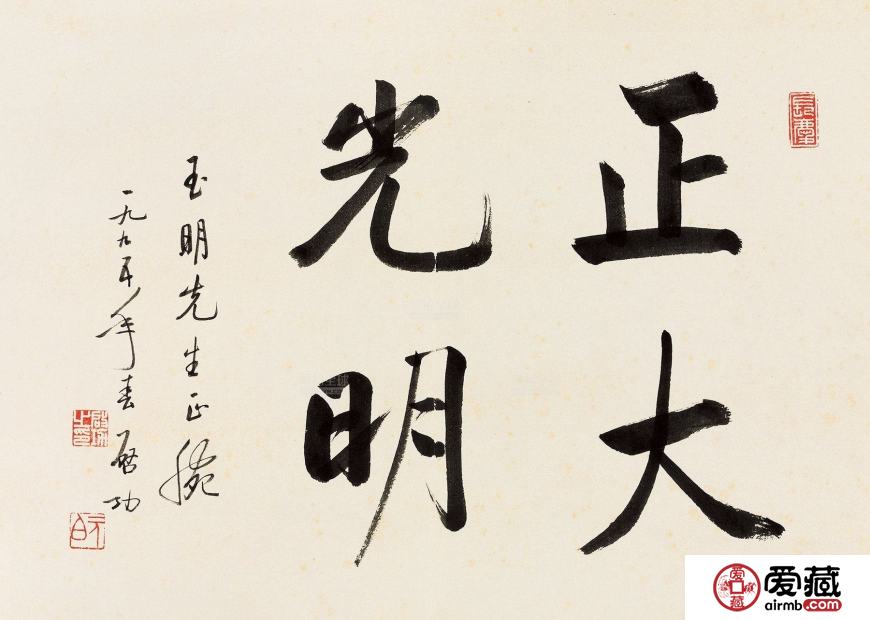 正大
光明
玉明先生正腕
一九九五年春 启功
启功之印
元白
爱藏
airmb.com